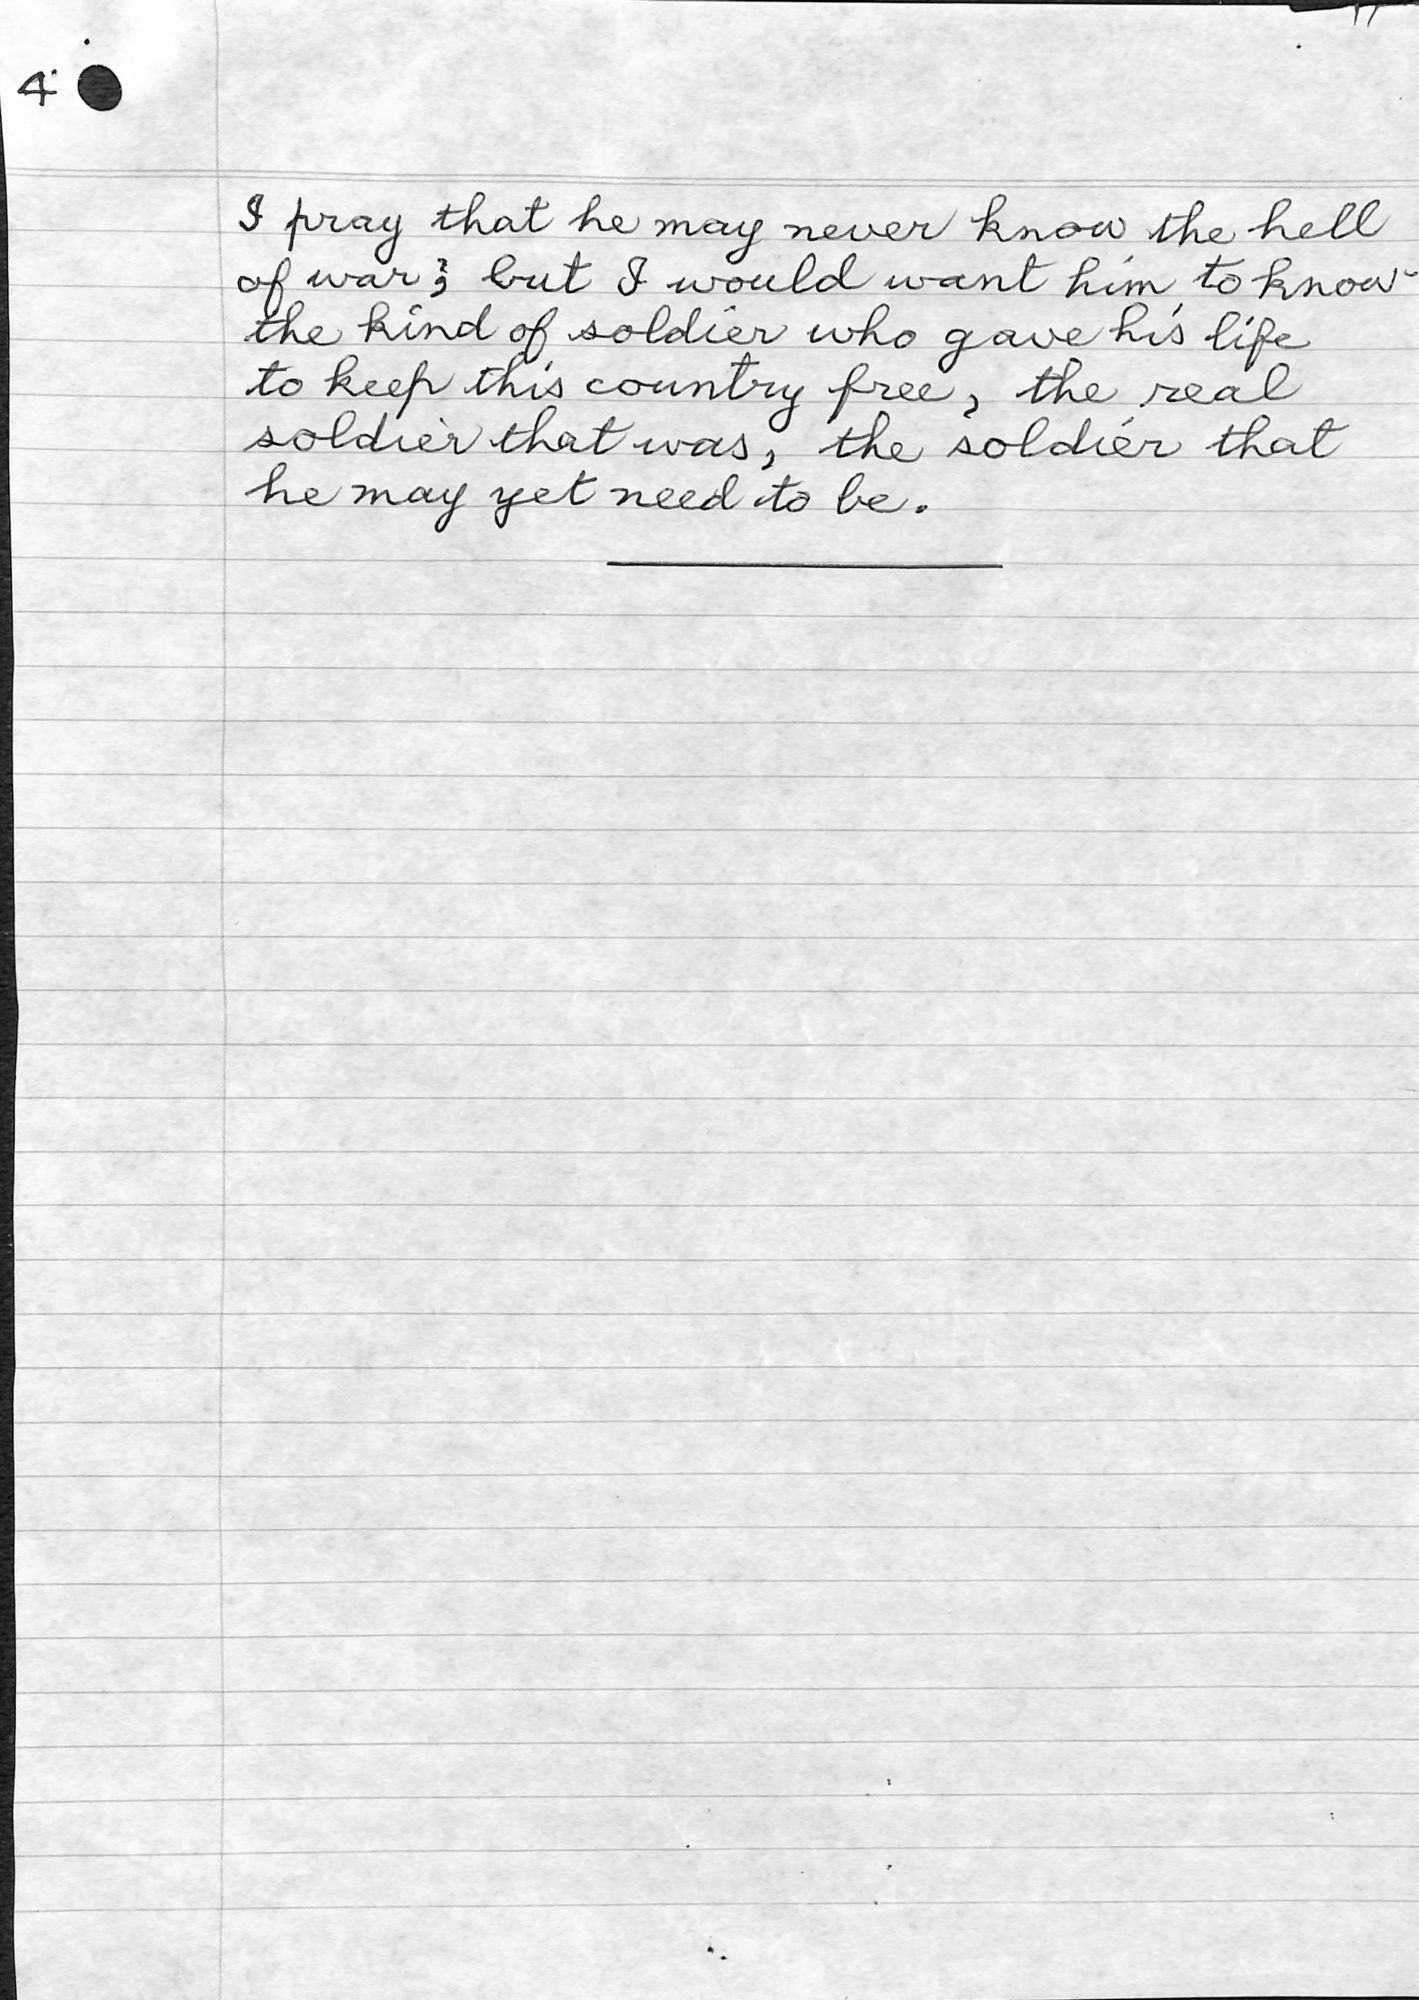 4
I pray that he may never know the hell
of war; but I would want him to know
the kind of soldier who gave his life
to keep this country free, the real
soldier that was, the soldier that
he may yet need to be.